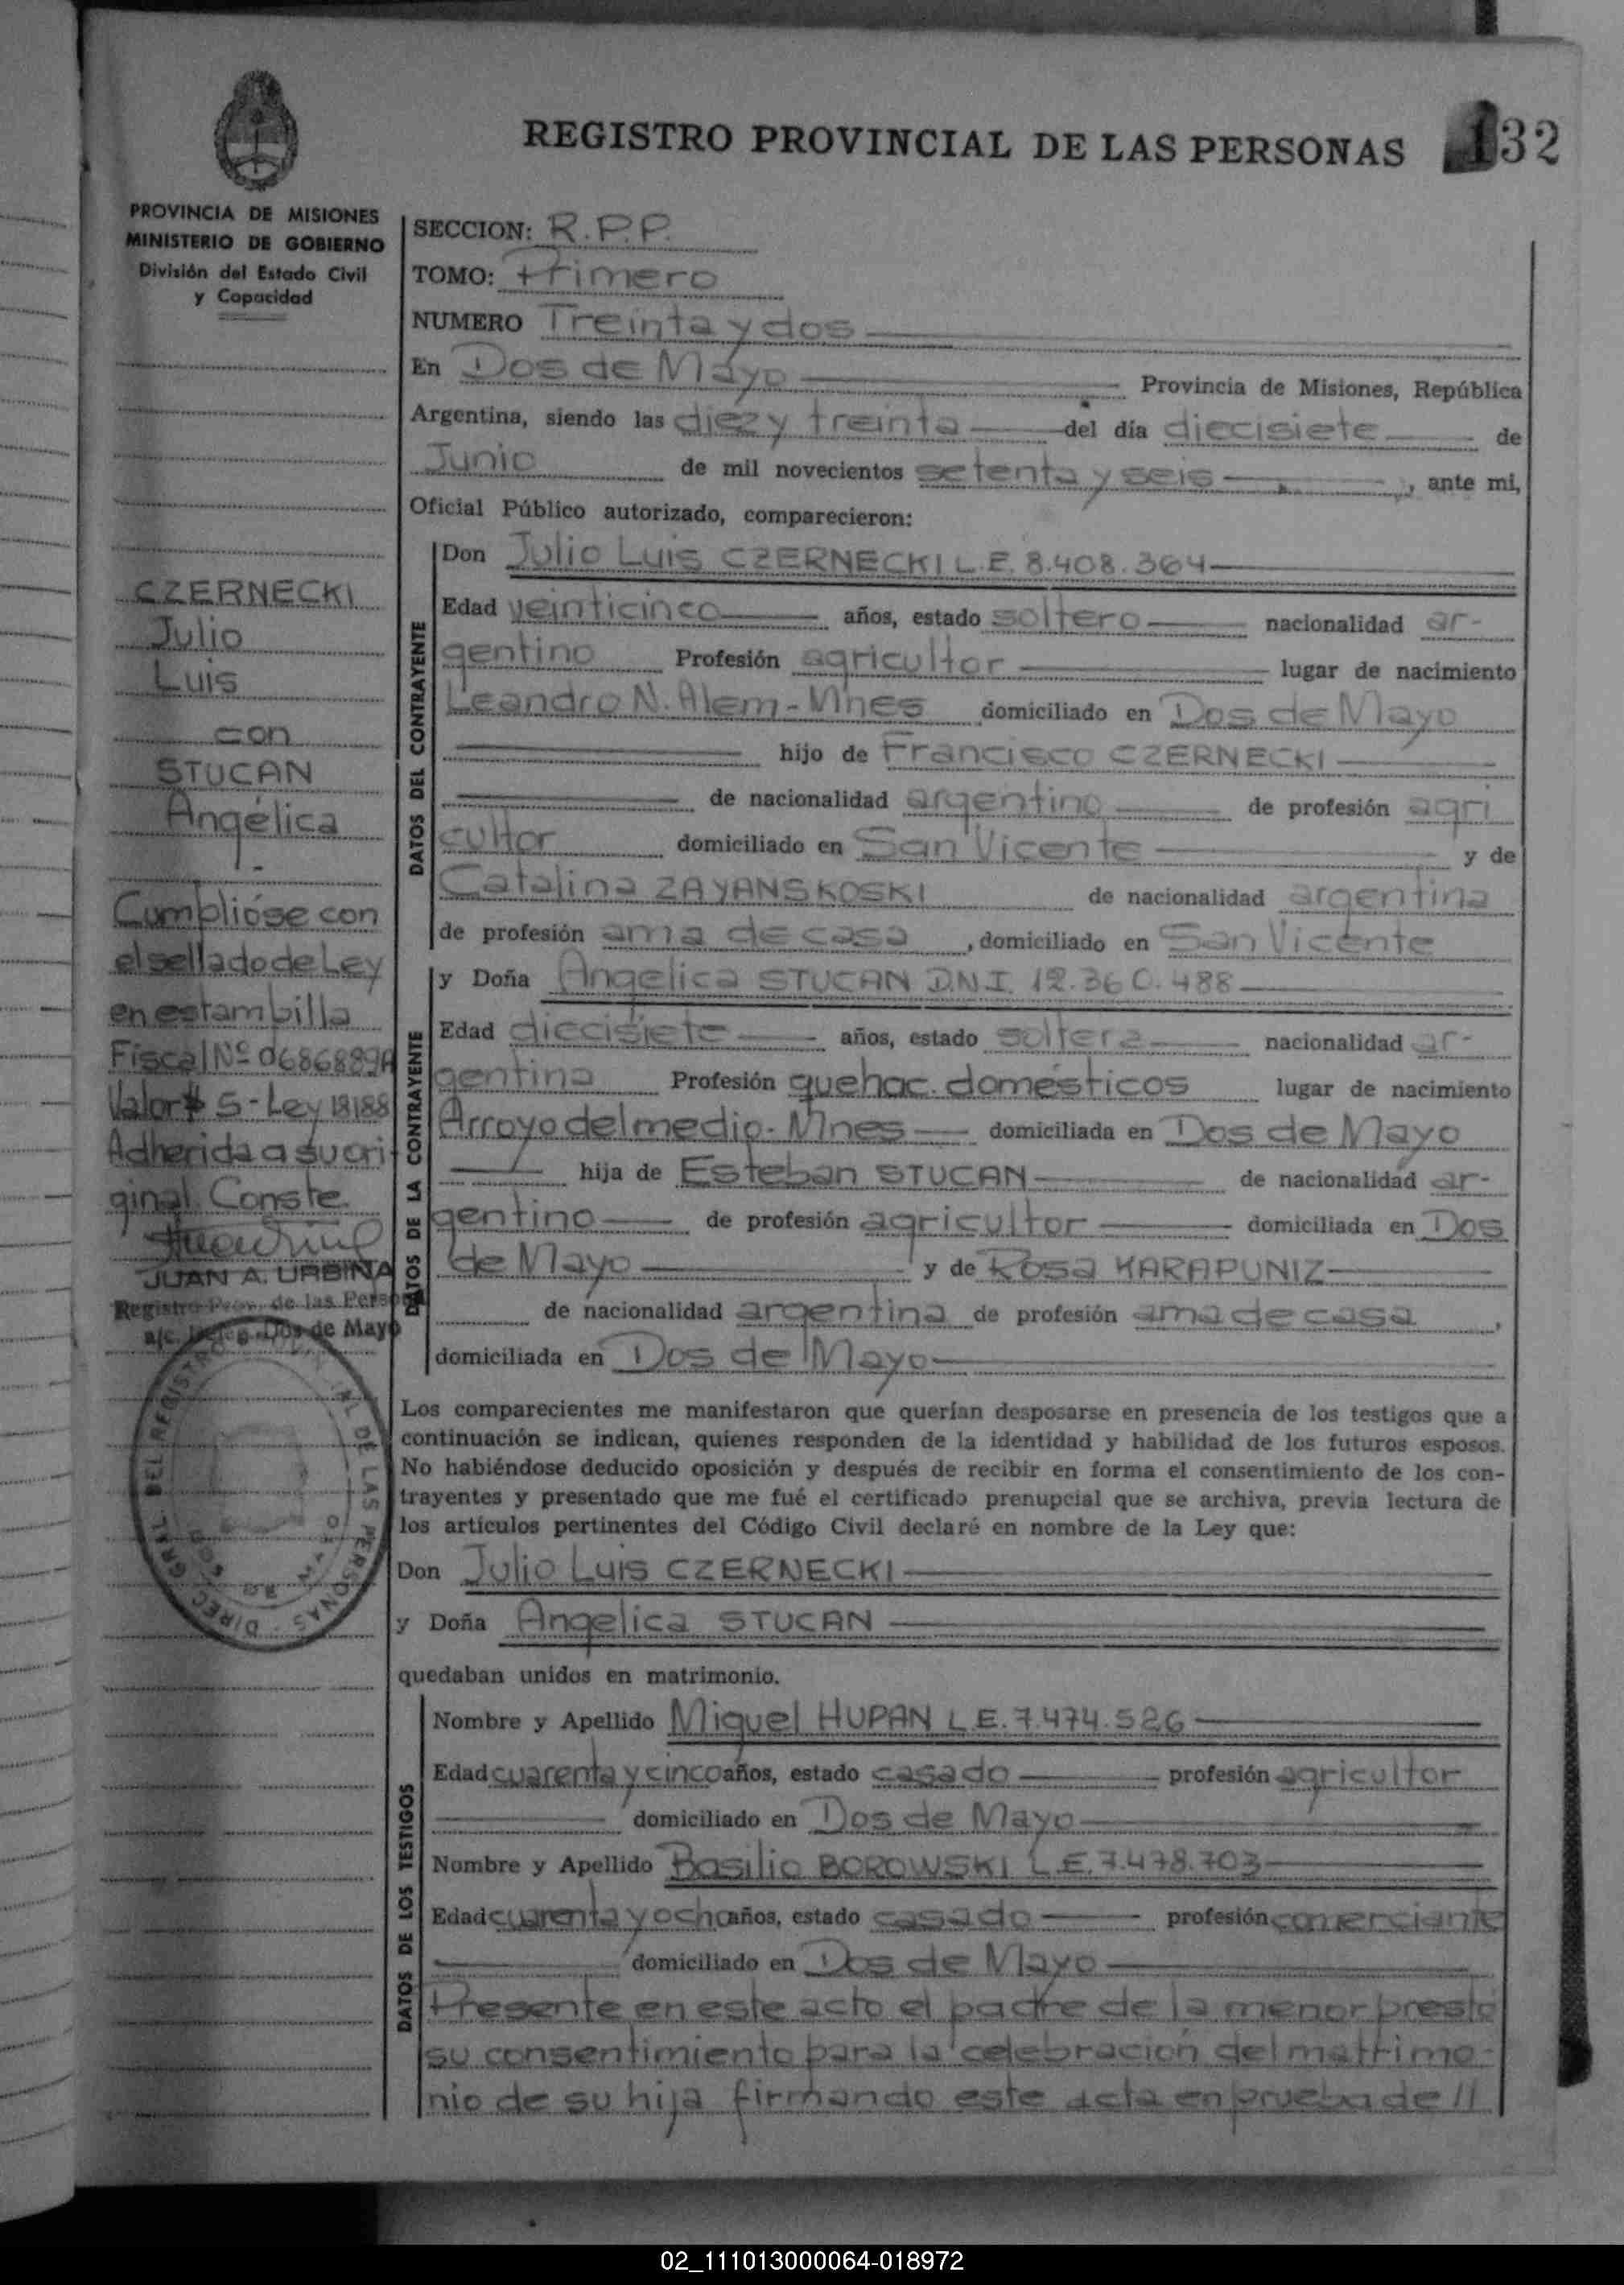 REGISTRO PROVINCIAL DE LAS PERSONAS 132
PROVINCIA DE MISIONES
MINISTERIO DE GOBIERNO
División del Estado Civil
y Capacidad
CZERNECKI
Julio
Luis
con
STUCAN
Angélica
Cumplióse con
el sellado de Ley
en estampilla
Fiscal Nº 0686889A
Valor $ 5- Ley 18188
Adherida a su ori
ginal. Conste
JUAN A. URBINA
Registro Prov. de las Personas
a/c. Deleg. Dos de Mayo
SECCION: R.P.P.
TOMO: Primero
NUMERO Treinta y dos
En Dos de Mayo Provincia de Misiones, República
Argentina, siendo las diez y treinta del día diecisiete de
Junio de mil novecientos setenta y seis, ante mi,
Oficial Público autorizado, comparecieron:
DATOS DEL CONTRAYENTE
Don Julio Luis CZERNECKI L.E. 8.408.364
Edad veinticinco años, estado soltero nacionalidad ar-
gentino Profesión agricultor lugar de nacimiento
Leandro N. Alem - Mnes domiciliado en Dos de Mayo
hijo de Francisco CZERNECKI
de nacionalidad argentino de profesión agri
cultor domiciliado en San Vicente y de
Catalina ZAYANSKOSKI de nacionalidad argentina
de profesión ama de casa, domiciliado en San Vicente
DATOS DE LA CONTRAYENTE
y Doña Angelica STUCAN D.N.I. 12.360.488
Edad diecisiete años, estado soltera nacionalidad ar-
gentina Profesión quehac. domésticos lugar de nacimiento
Arroyo del medio - Mnes domiciliada en Dos de Mayo
hija de Esteban STUCAN de nacionalidad ar-
gentino de profesión agricultor domiciliada en Dos
de Mayo y de Rosa KARAPUNIZ
de nacionalidad argentina de profesión ama de casa,
domiciliada en Dos de Mayo
Los comparecientes me manifestaron que querían desposarse en presencia de los testigos que a
continuación se indican, quienes responden de la identidad y habilidad de los futuros esposos.
No habiéndose deducido oposición y después de recibir en forma el consentimiento de los con-
trayentes y presentado que me fué el certificado prenupcial que se archiva, previa lectura de
los artículos pertinentes del Código Civil declaré en nombre de la Ley que:
Don Julio Luis CZERNECKI
y Doña Angelica STUCAN
quedaban unidos en matrimonio.
DATOS DE LOS TESTIGOS
Nombre y Apellido Miguel HUPAN L.E. 7.474.526
Edad cuarenta y cinco años, estado casado profesión agricultor
domiciliado en Dos de Mayo
Nombre y Apellido Basilio BOROWSKI L.E. 7.478.703
Edad cuarenta y ocho años, estado casado profesión comerciante
domiciliado en Dos de Mayo
Presente en este acto el padre de la menor presto
su consentimiento para la celebración del matrimo-
nio de su hija firmando este acta en prueba de //
02_111013000064-018972